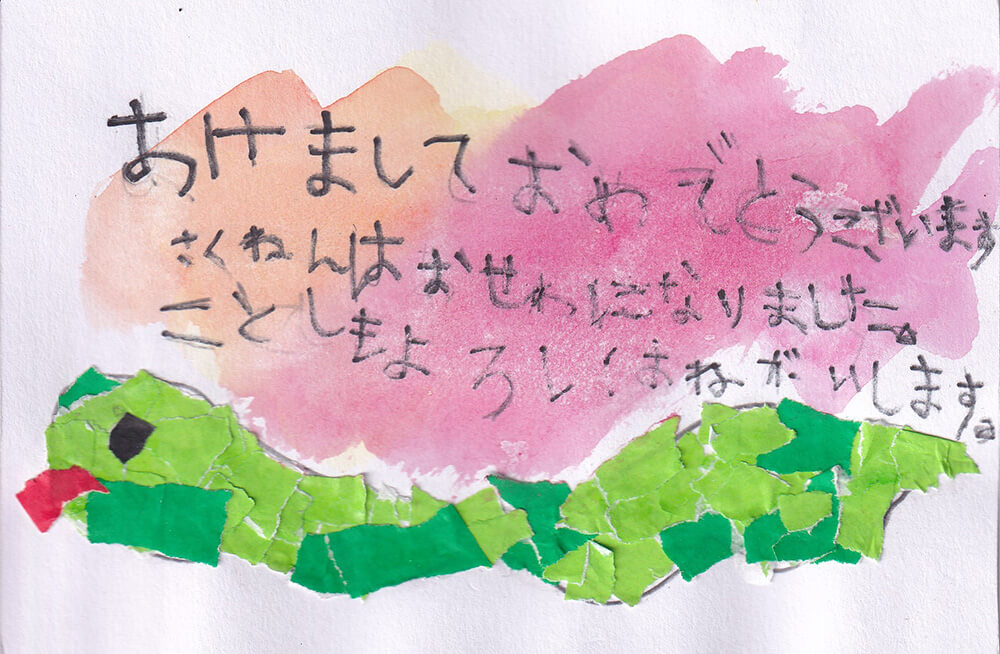 あけましておめでとうございます
さくねんはおせわになりました。
ことしもよろしくおねがいします。